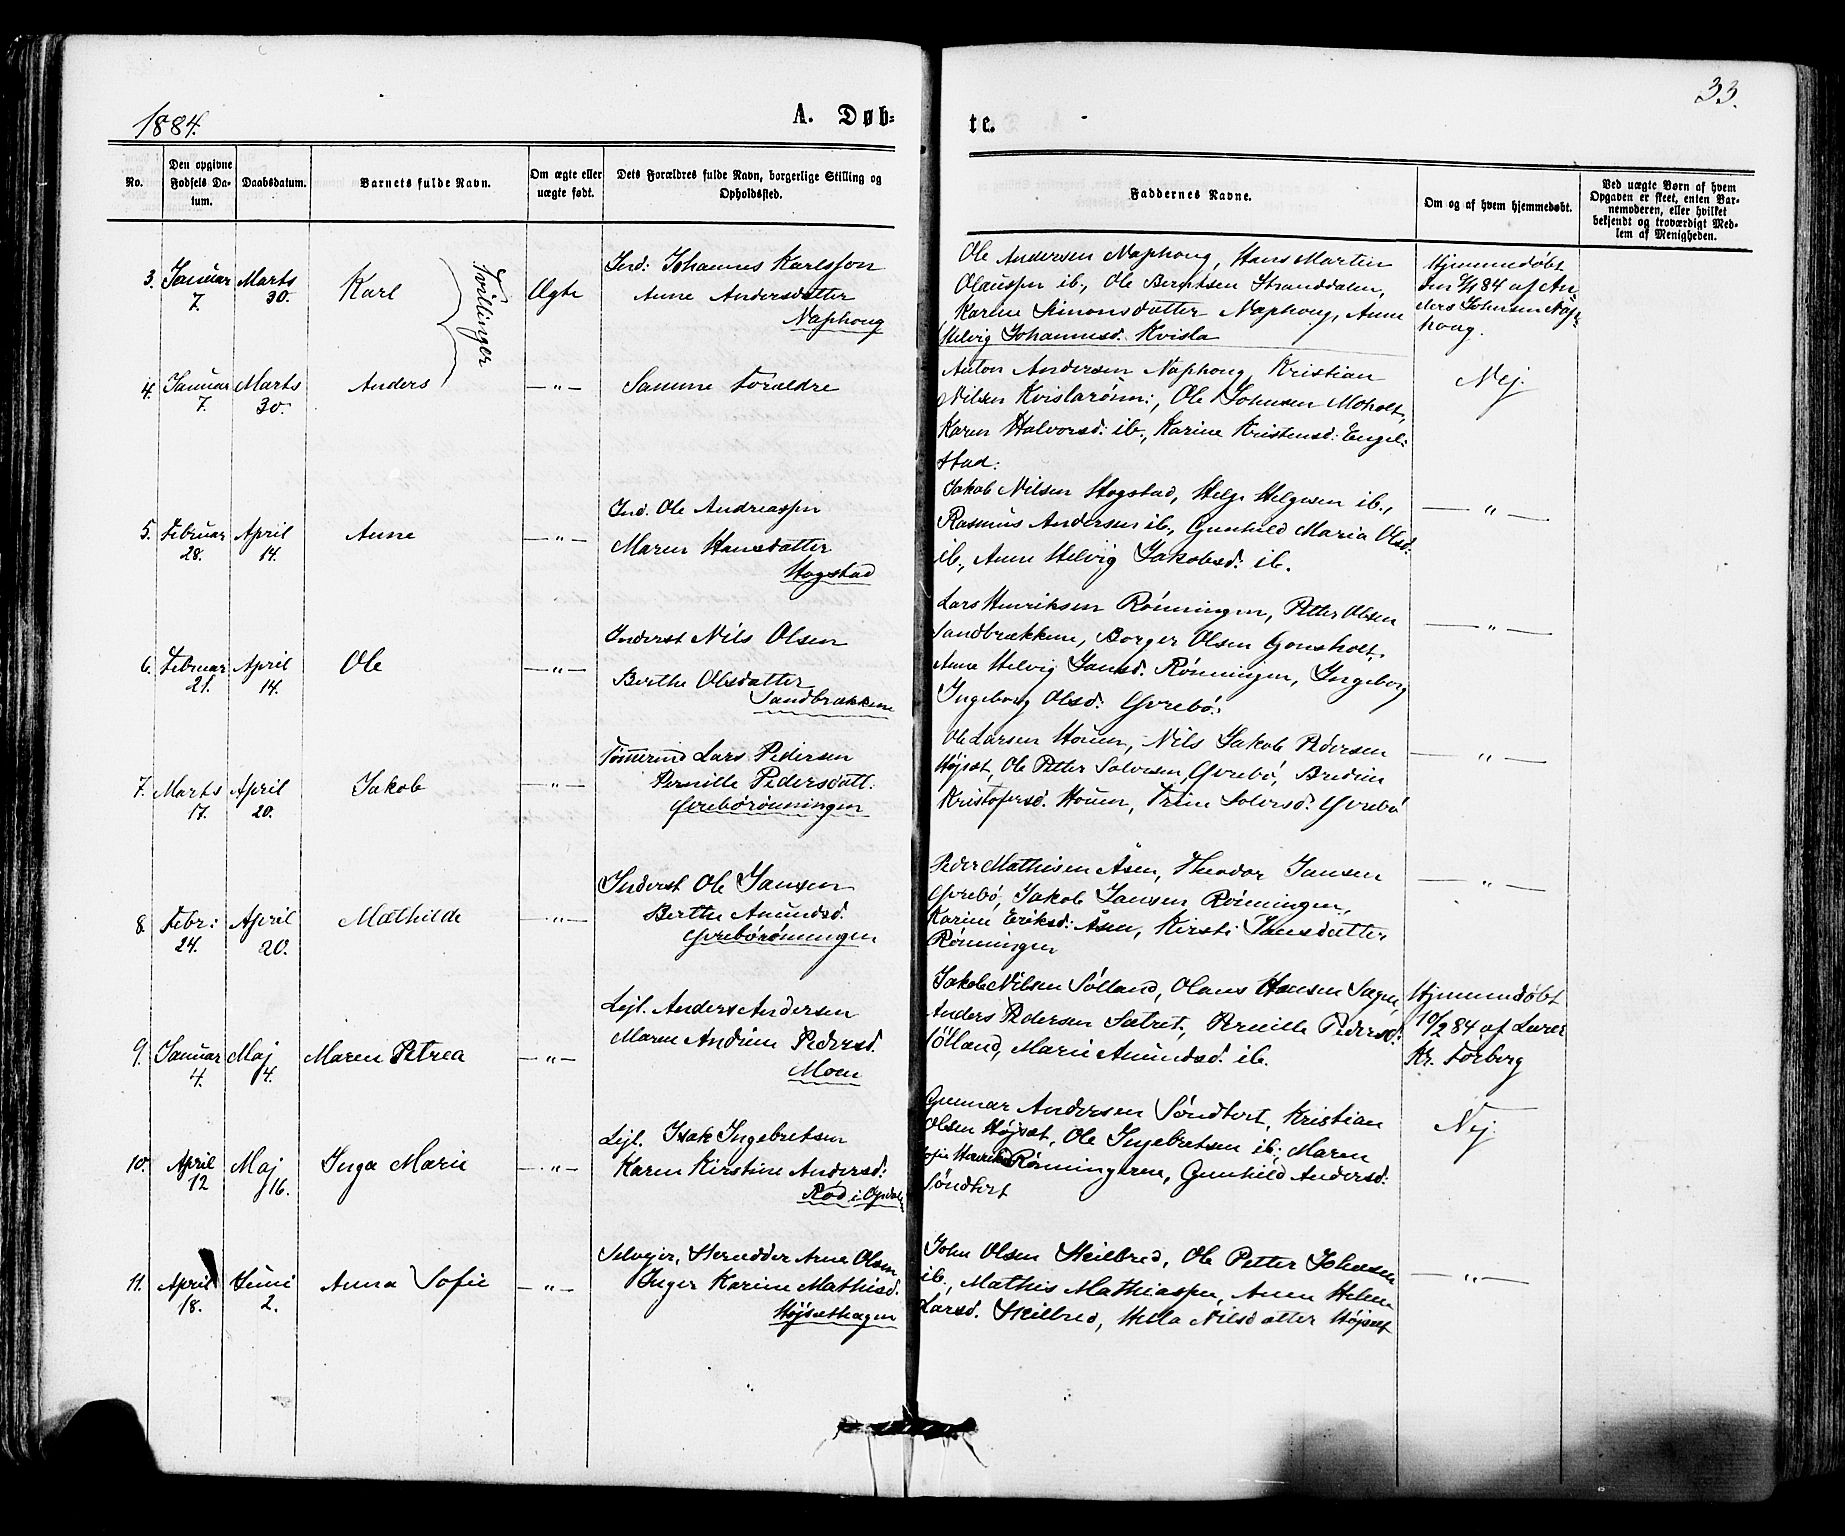 1884.
A. Døb-
te.
33.
No.
Den opgivne
Fødsels Da-
tum.
Daabsdatum.
Barnets fulde Navn.
Om ægte eller
uægte født.
Dets Forældres fulde Navn, borgerlige Stilling og
Opholdssted.
Faddernes Navne.
Om og af hvem hjemmedøbt.
Ved uægte Børn af hvem
Opgaven er skeet, enten Bar-
nemoderen, eller hvilket
bekjendt og troværdigt Med-
lem af Menigheden.
3.
Januar
7.
Marts
30.
Karl
Tvillinger
Ægte
Ind: Johannes Karlsson
Anne Andersdatter
Naphoug
Ole Andersen Naphoug, Hans Martin
Olaussen ib., Ole Berntsen Stranddalen,
Karine Simonsdatter Naphoug, Anne
Helvig Johannesd. Kvisla
Hjemmedøbt
den 84 af An
ders Johnsen Nap
houg.
4.
Januar
7.
Marts
30.
Anders
—"—
Samme Forældre
Anton Andersen Naphoug, Kristian
Nilsen Kvislarønn:, Ole Johnsen Moholt,
Karen Halvorsd: ib., Karine Kristensd: Engel-
stad:
Nej.
5.
Februar
28.
April
14.
Anne
—"—
Ind. Ole Andreassen
Maren Hansdatter
Hogstad
Jakob Nilsen Hogstad, Helge Helgesen ib.,
Rasmus Andersen ib., Gunhild Maria Olsd.
ib., Anne Helvig Jakobsd. ib.
—"—
6.
Februar
21.
April
14.
Ole
—"—
Inderst Nils Olsen
Berthe Olsdatter
Sandbrækkene
Lars Henriksen Rønningen, Petter Olsen
Sandbrækkene, Borger Olsen Gonsholt,
Anne Helvig Jansd. Rønningen, Ingeborg
Ingeborg Olsd. Gvrebø.
—"—
7.
Marts
17.
April
20.
Jakob
—"—
Tømmermd Lars Pedersen
Pernille Pedersdatt:
Gvrebørønningen
Ole Larsen Houen, Nils Jakob Pedersen
Højsæt, Ole Petter Solvesen Gvrebø, Bredine
Kristofersd. Houen, Trine Solvesd. Gvrebø
—"—
8.
Febr:
24.
April
20.
Mathilde
—"—
Inderst Ole Jansen
Berthe Amundsd.
Gvrebørønningen
Peder Mathisen Åsen, Theodor Jansen
Gvrebø, Jakob Jansen Rønningen,
Karine Eriksd: Åsen, Kirsti Jansdatter
Rønningen
—"—
9.
Januar
4.
Maj
4.
Maren Petrea
—"—
Lejl. Anders Andersen
Maren Andrine Pedersd.
Moen
Jakob Nilsen Sølland, Olaus Hansen Sagen,
Anders Pedersen Sætret, Pernille Pedersd.
Sølland, Marie Amundsd. ib.
Hjemmedøbt
10/2 84 af Lærer
Kr. Forberg
10.
April
12
Maj
16.
Inga Marie
—"—
Lejl. Isak Ingebretsen
Karen Kirstine Andersd:
Rød i Opdal
Gunnar Andersen Søndbert, Kristian
Olsen Højsæt, Ole Ingebretsen ib., Maren
Sofie Henriksd Rønningeren, Gunhild Andersd.
Søndbert
Nej.
11.
April
18.
Juni
2.
Anna Sofie
—"—
Selvejer, Arne Olsen
Inger Karine Mathisd.
Højsæthagen
John Olsen Skilbred, Ole Petter Johnsen
ib., Mathis Mathiassen, Anne Helene
Larsd. Skilbred, Hella Nilsdatter Højsæt
—"—